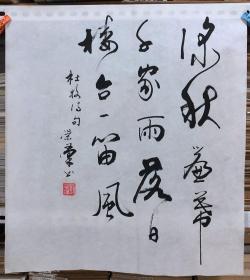 深秋簾幕
千家雨落日
樓台一笛風
杜牧詩句
荣肇书